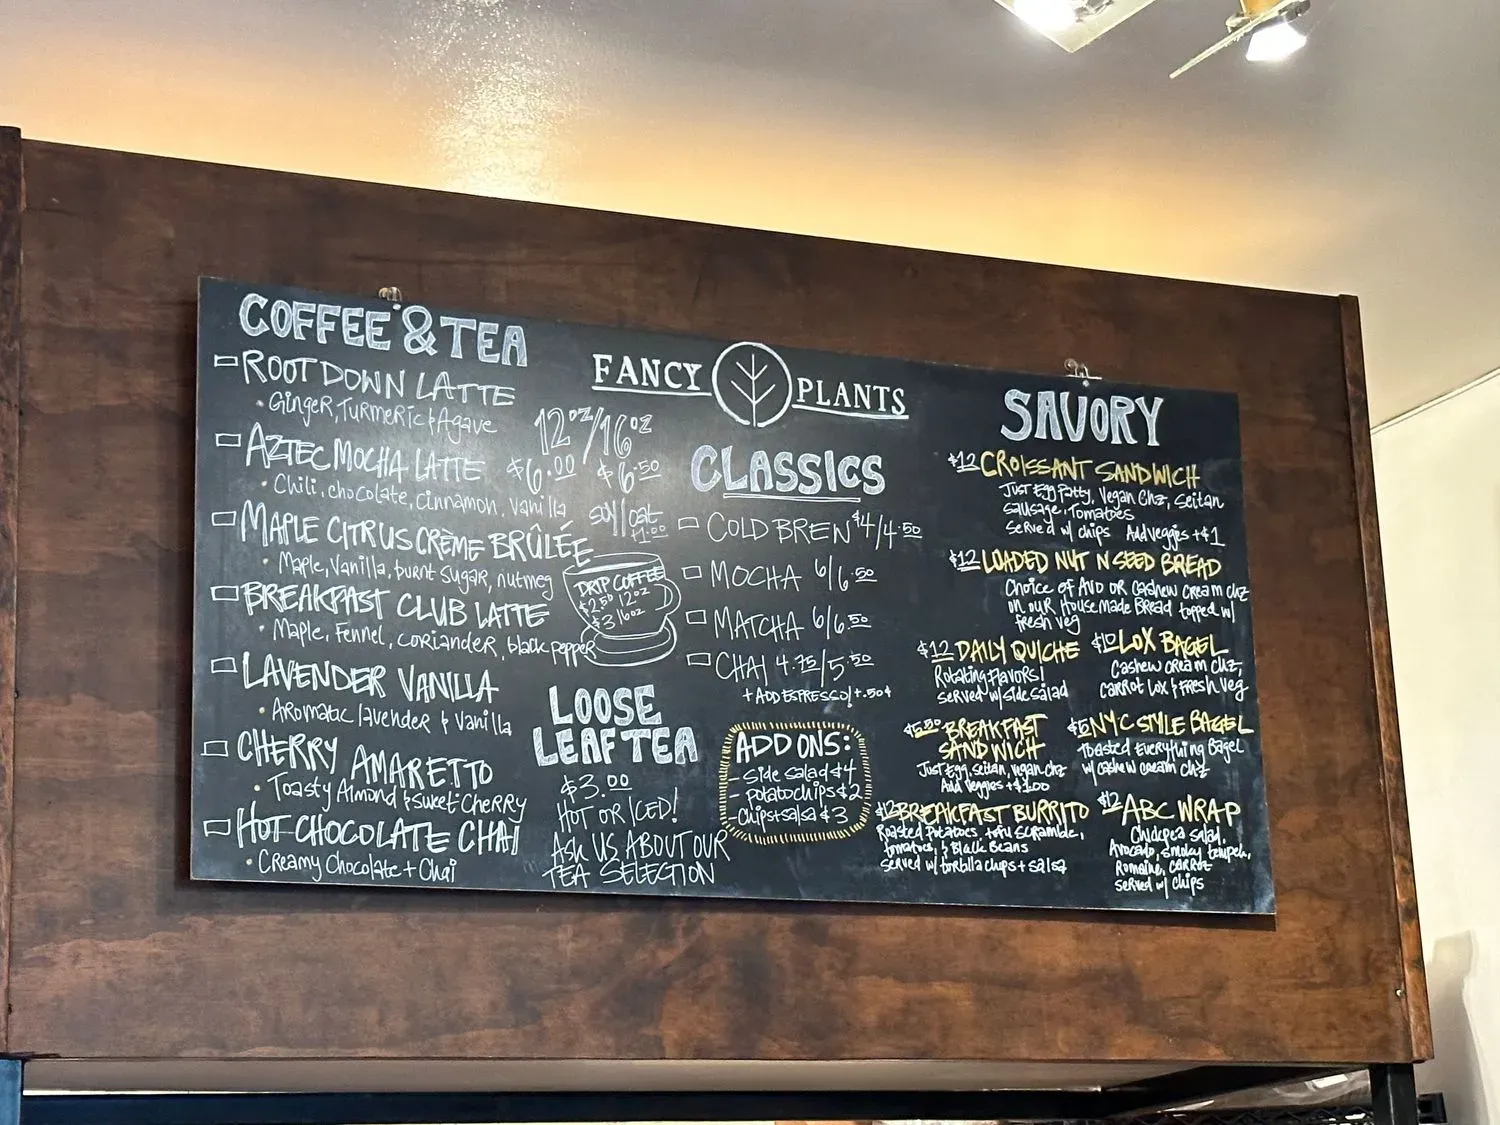 COFFEE & TEA
ROOT DOWN LATTE
• Ginger, Turmeric & Agave
AZTEC MOCHA LATTE
• Chili, chocolate, cinnamon, vanilla
MAPLE CITRUS CRÈME BRÛLÉE
• Maple, Vanilla, burnt sugar, nutmeg
BREAKFAST CLUB LATTE
• Maple, Fennel, coriander, black pepper
LAVENDER VANILLA
• Aromatic lavender & vanilla
CHERRY AMARETTO
• Toasty Almond & Sweet Cherry
HOT CHOCOLATE CHAI
• Creamy Chocolate + Chai
12oz/16oz
$6.00 $6.50
soy/oat
+1.00
DRIP COFFEE
$2.50 12oz
$3 16oz
LOOSE
LEAF TEA
$3.00
HOT OR ICED!
ASK US ABOUT OUR
TEA SELECTION
FANCY PLANTS
CLASSICS
COLD BREW $4/4.50
MOCHA 6/6.50
MATCHA 6/6.50
CHAI 4.75/5.50
+ ADD ESPRESSO/+.50¢
ADD ONS:
- Side salad $4
- potato chips $2
- Chips+salsa $3
SAVORY
$12 CROISSANT SANDWICH
Just Egg Patty, Vegan Chz, Seitan
sausage, Tomatoes
served w/ chips Add veggies +$1
$12 LOADED NUT N SEED BREAD
Choice of AVO OR Cashew cream chz
on our Housemade Bread topped w/
fresh veg
$12 DAILY QUICHE
Rotating flavors!
served w/ side salad
$10 LOX BAGEL
Cashew cream chz,
carrot lox & fresh veg
$5.50 BREAKFAST
SANDWICH
Just Egg, seitan, vegan chz
Add Veggies +$1.00
$5 NYC STYLE BAGEL
Toasted Everything Bagel
w/ cashew cream chz
$12 BREAKFAST BURRITO
Roasted Potatoes, tofu scramble,
tomatoes, & Black Beans
served w/ tortilla chips + salsa
$12 ABC WRAP
Chickpea salad,
Avocado, smoky tempeh,
Romaine, carrot
served w/ chips